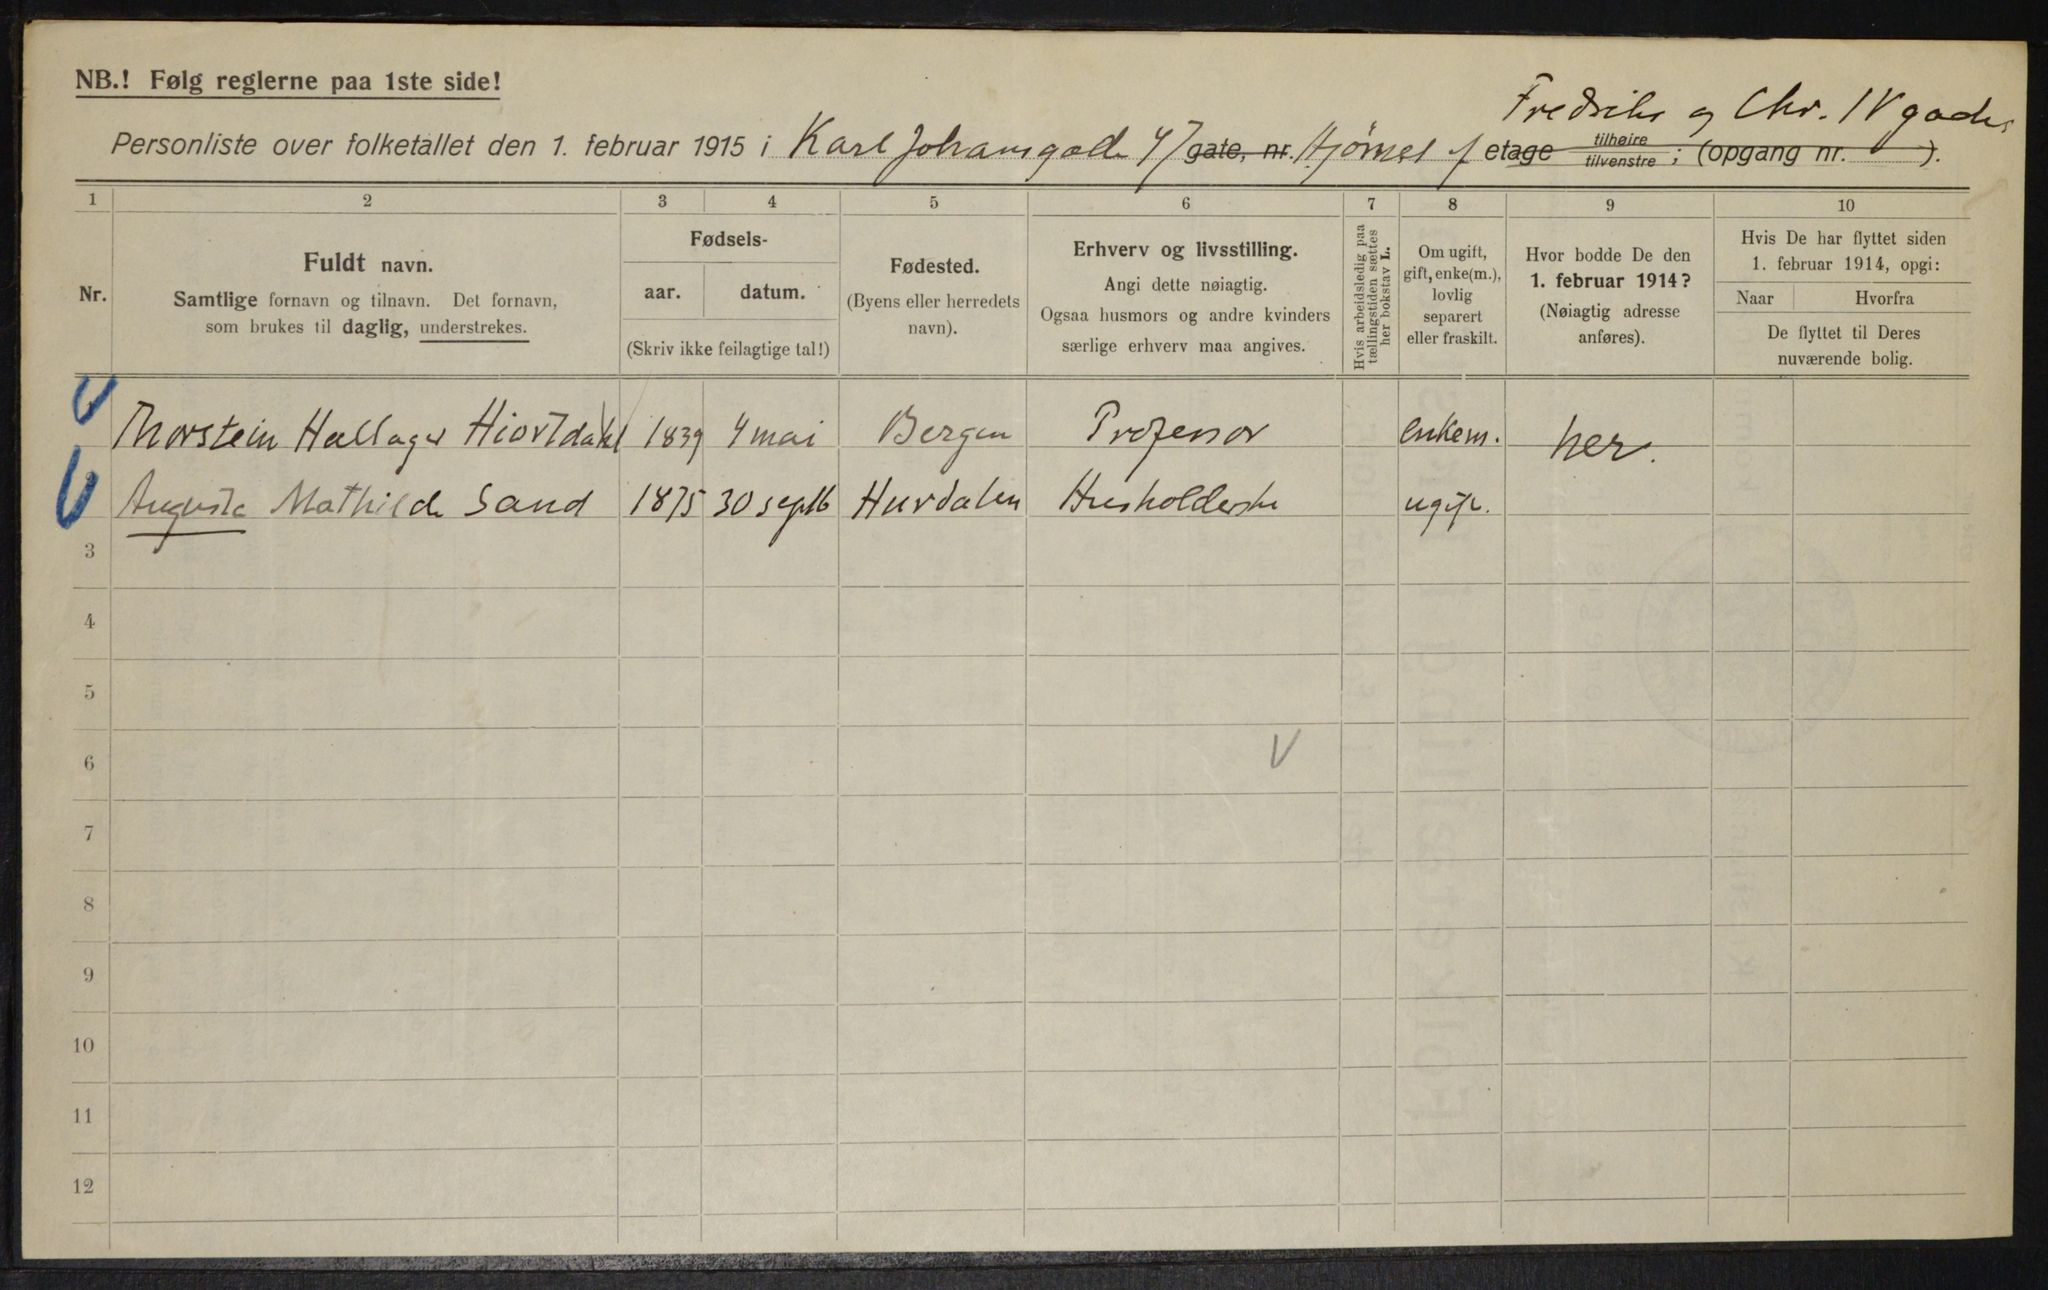 NB.! Følg reglerne paa 1ste side!
Fredriks og Chr. IV gades
Personliste over folketallet den 1. februar 1915 i Karl Johansgade 47 gate, nr. Hjørnet af etage tilhøire tilvenstre ; (opgang nr. ).
1 2 3 4 5 6 7 8 9 10
Nr.
Fuldt navn.
Samtlige fornavn og tilnavn. Det fornavn,
som brukes til daglig, understrekes.
Fødsels-
aar. datum.
(Skriv ikke feilagtige tal!)
Fødested.
(Byens eller herredets
navn).
Erhverv og livsstilling.
Angi dette nøiagtig.
Ogsaa husmors og andre kvinders
særlige erhverv maa angives.
Hvis arbeidsledig paa
tællingstiden sættes
her bokstav L.
Om ugift,
gift, enke(m.),
lovlig
separert
eller fraskilt.
Hvor bodde De den
1. februar 1914?
(Nøiagtig adresse
anføres).
Hvis De har flyttet siden
1. februar 1914, opgi:
Naar Hvorfra
De flyttet til Deres
nuværende bolig.
Thorstein Hallager Hiortdahl 1839 4 mai Bergen Professor enkem. her.
Augusta Mathilde Sand 1875 30 septb Hurdalen Husholderske ugift.
3
4
5
6
V
7
8
9
10
11
12